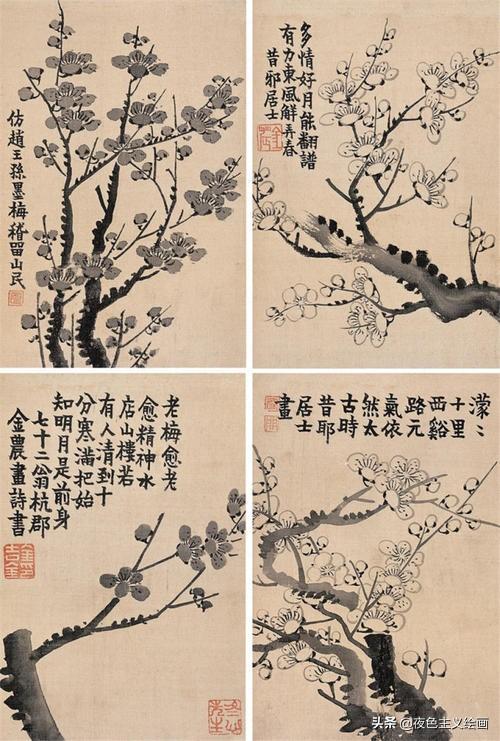 仿趙王孫墨梅稽留山民
多情好月能翻譜
有力東風解弄春
昔邪居士
老梅愈老
愈精神水
店山樓若
有人清到十
分寒滿把始
知明月是前身
七十二翁杭郡
金農畫詩書
濛濛
十里
西谿
路元
氣依
然太
古時
昔耶
居士
畫
头条 @夜色主义绘画